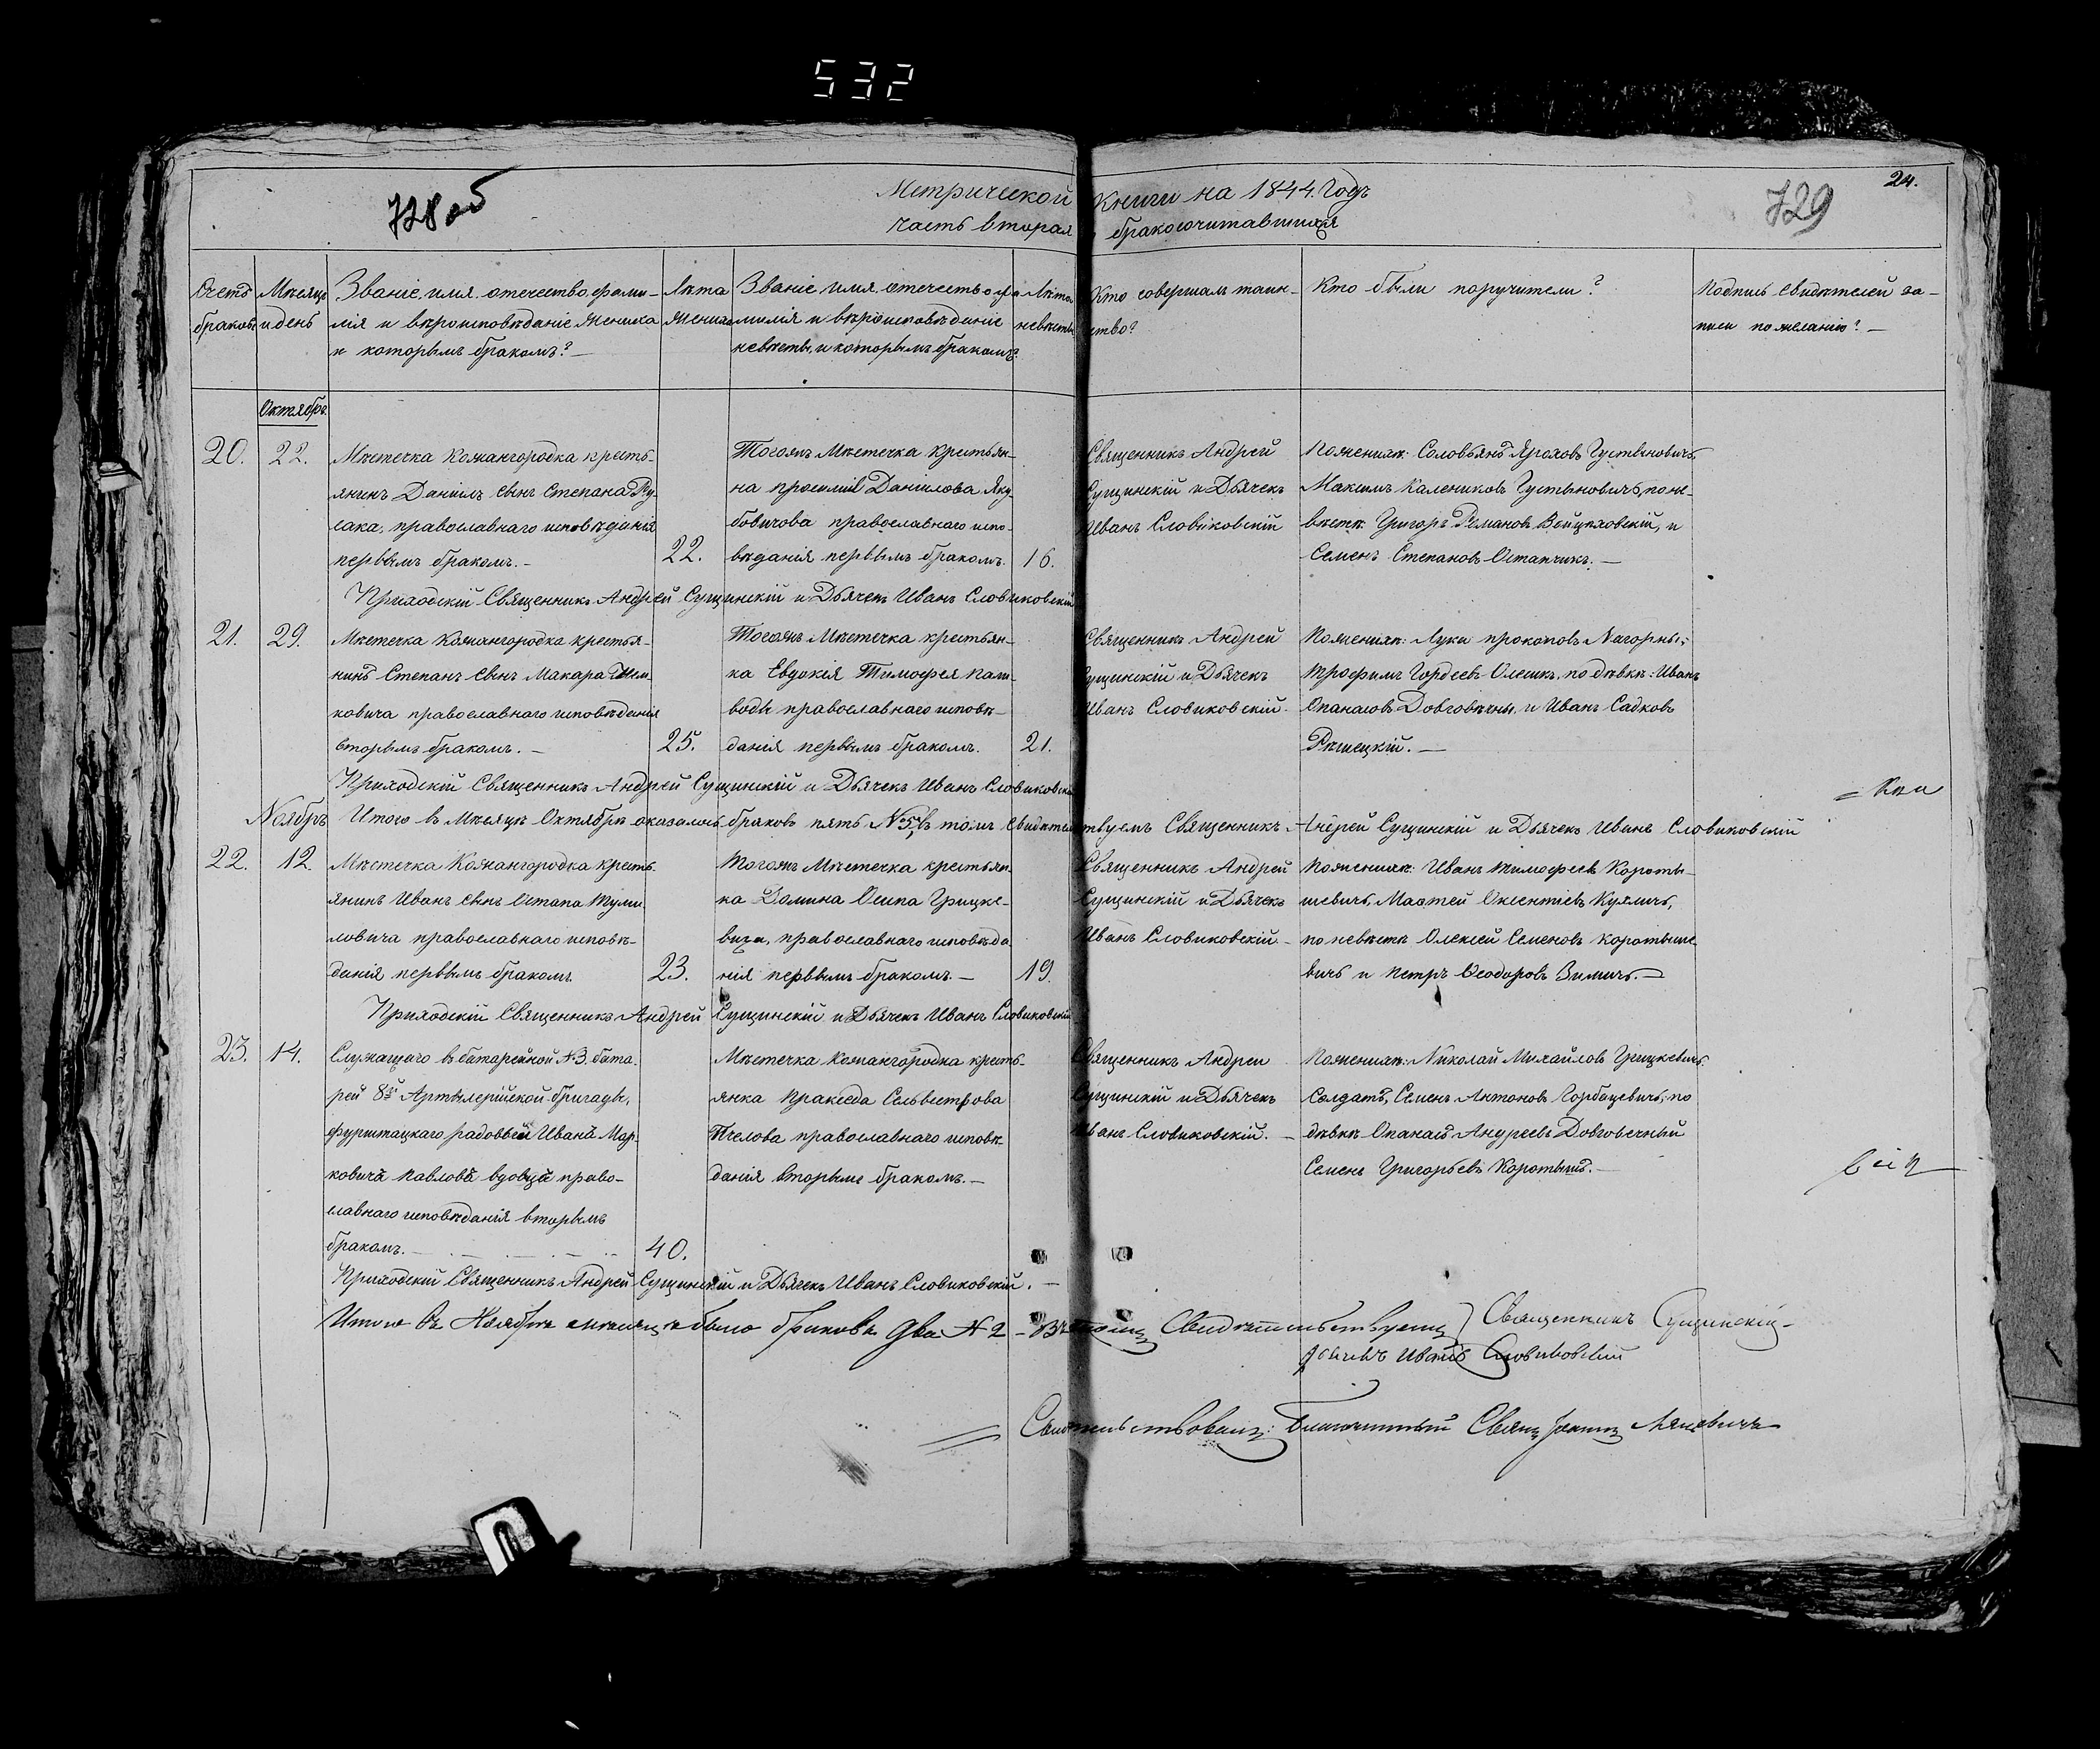 532
728об
Метрической Книги на 1844. Годъ
729
24.
часть вторая бракосочитавшихся
Счетъ браковъ
Мѣсяцъ и день
Званіе, имя, отечество, фами-
лія и вѣроисповѣданіе жениха
и которымъ бракомъ? —
Лѣта жениха
Званіе, имя, отечество, фа-
милія и вѣроисповѣданіе
невѣсты, и которымъ бракомъ?
Лѣта невѣсты
Кто совершалъ таин-
ство?
Кто были поручители?
Подпись свидѣтелей за-
писи по желанію? —
Октябрь.
20.
22.
Мѣстечка Кожангородка кресть-
янинъ Даніилъ сынъ Степана Ру-
сака, православнаго исповѣданія
первымъ бракомъ. —
22.
Тогожъ Мѣстечка крестьян-
на Данилова Яку-
бовичова православнаго испо-
вѣданія первымъ бракомъ.
16.
Священникъ Андрей
Сущинскій и Дьячекъ
Иванъ Словиковскій
По женихѣ: Яроховъ Густыновичъ,
Максимъ Калениковъ Густыновичъ, по не-
вѣстѣ Григоръ Романовъ Войцѣховскій, и
Семенъ Степановъ Остапчикъ. —
Приходскій Священникъ Андрей Сущинскій и Дьячекъ Иванъ Словиковскій
21.
29.
Мѣстечка Кожангородка крестья-
нинъ Степанъ сынъ Макара
ковича православнаго исповѣданія
вторымъ бракомъ. —
25.
Тогожъ Мѣстечка крестьян-
ка Евдокія Тимофея
воды православнаго исповѣ-
данія первымъ бракомъ.
21.
Священникъ Андрей
Сущинскій и Дьячекъ
Иванъ Словиковскій.
По женихѣ: Лука Прокоповъ Нагорный;
Трофимъ Гордеевъ Олешкъ, по дѣвкѣ: Иванъ
Опанасовъ Довговѣчны, и Иванъ Садковъ
Рѣшецкій. —
Приходскій Священникъ Андрей Сущинскій и Дьячекъ Иванъ Словиковскій
Ноябрь
Итого в Мѣсяцѣ Октябрѣ оказалось браковъ пять №5, въ томъ свидѣтельствуемъ Священникъ Андрей Сущинскій и Дьячекъ Иванъ Словиковскій
22.
12.
Мѣстечка Кожангородка кресть-
янинъ Иванъ сынъ Остапа Туми-
ловича православнаго исповѣ-
данія первымъ бракомъ
23.
Тогожъ Мѣстечка крестьян-
ка Домина Осипа Грицке-
вича, православнаго исповѣда-
нія первымъ бракомъ. —
19.
Священникъ Андрей
Сущинскій и Дьячекъ
Иванъ Словиковскій —
По женихѣ: Иванъ Тимофеевъ Короты-
шевичъ, Маѳтей Оксентіевъ Куяличъ,
по невѣстѣ Олексей Семеновъ Коротыше-
вичъ и Петръ Ѳеодоровъ Зимичъ. —
Приходскій Священникъ Андрей Сущинскій и Дьячекъ Иванъ Словиковскій
23.
14.
Служащаго в батарейной №3. бата-
рей 8й Артылерійской бригады,
фурштацкаго радоваго Ивана Мар-
ковича Павлова вдовца право-
славнаго исповѣданія вторымъ
бракомъ. —
40.
Мѣстечка Кожангородка кресть-
янка Пракседа Сельвестрова
Пчелова православнаго исповѣ-
данія вторымъ бракомъ. —
Священникъ Андрей
Сущинскій и Дьячекъ
Иванъ Словиковскій. —
По женихѣ: Николай Михайловъ Грицкевичъ
солдатъ, Семенъ Антоновъ Горбацевичъ, по
дѣвкѣ Опанасъ Андреевъ Довговечный
Семенъ Григорьевъ Коротышъ. —
Приходскій Священникъ Андрей Сущинскій и Дьячекъ Иванъ Словиковскій. —
Итого въ Ноябрѣ мѣсяцѣ было браковъ два №2 — въ томъ свидѣтельствуемъ Священникъ Сущинскій —
Дьячекъ Иванъ Словиковскій
Свидѣтельствовалъ: Благочинный Свящ: Іоаннъ Ляцевичъ